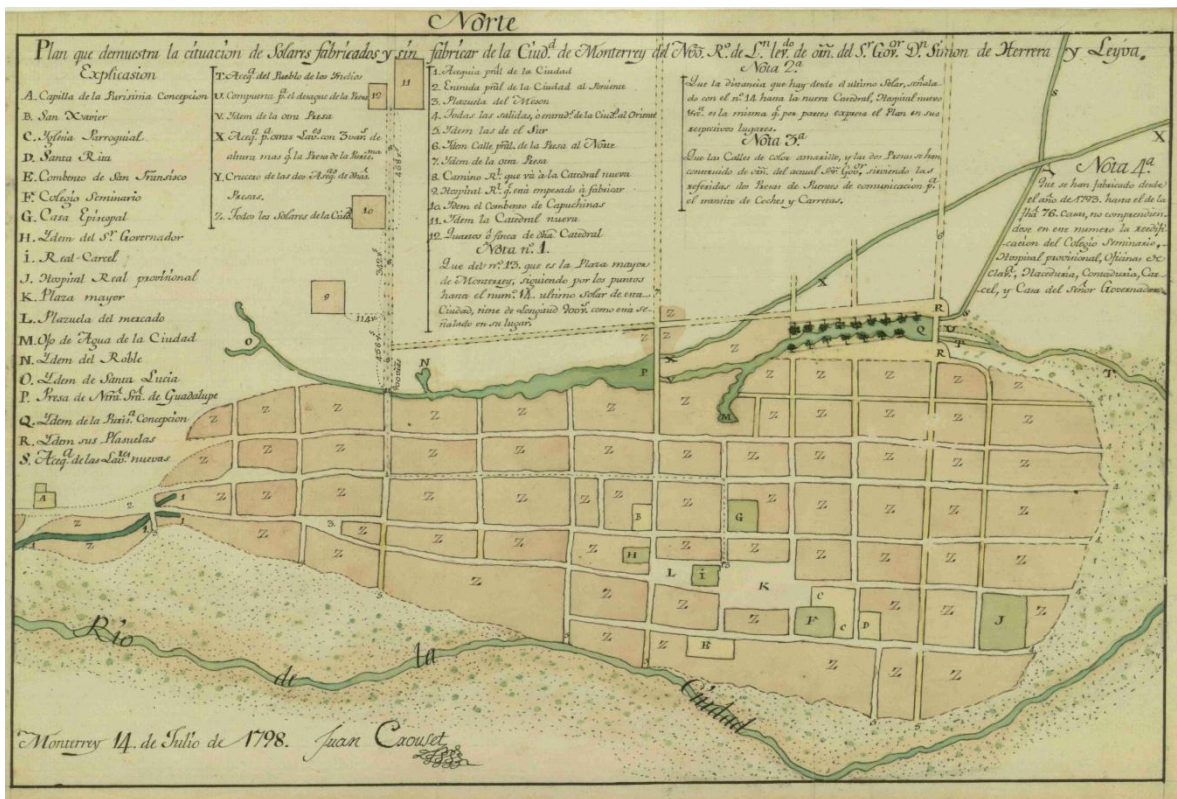 Norte
Plan que demuestra la cituacion de Solares fabricados y sin fabricar de la Ciud.d de Monterrey del Nvo. R.o de L.n lev.do de orn. del S.r Gov.or D.n Simon de Herrera y Leyva.
Explicasion
A. Capilla de la Purisinia Concepcion
B. San Xavier
C. Iglesia Parroquial
D. Santa Rita
E. Combento de San Fransisco
F. Colegio Seminario
G. Casa Epicopal
H. Ydem del S.r Governador
i. Real-Carcel
J. Hospital Real provisional
K. Plaza mayor
L. Plazuela del mercado
M. Ojo de Agua de la Ciudad
N. Ydem del Roble
O. Ydem de Santa Lucia
P. Presa de Ntra. Sra. de Guadalupe
Q. Ydem de la Puris.a Concepcion
R. Ydem sus Plasuelas
S. Aceq.a de las Lav.res nuevas
T. Aceq.a del Pueblo de los Yndios
V. Compuerta p.a el desague de la Presa
V. Ydem de la otra Presa
X. Aceq.a p.a otras Lav.es con 3 var.s de
altura mas q. la Presa de la Puris.ma
Y. Crucero de las dos Aceq.s de dhas
Presas.
Z. Todos los Solares de la Ciud.d
1. Aequia pral de la Ciudad
2. Entrada pral de la Ciudad al Poniente
3. Plazuela del Meson
4. Todas las salidas, o entrad.s de la Ciud.d al Oriente
5. Ydem las de el Sur
6. Ydem Calle pral. de la Presa al Norte
7. Ydem de la otra Presa
8. Camino R.l que vá à la Catedral nueva
9. Hospital R.l q. está empesado á fabricar
10. Ydem el Combento de Capuchinas
11. Ydem la Catedral nueva
12. Quarteo ó finca de dha Catedral
Nota n.o 1.
Que del n.o 13. que es la Plaza mayor
de Monterrey, siguiendo por los puntos
hasta el num.o 14. ultimo Solar de esta
Ciudad, tiene de Longitud como está se-
ñalado en su lugar.
Nota 2.a
Que la distancia que hay desde el ultimo Solar, señala-
do con el n.o 14 hasta la nueva Catedral, Hospital nuevo
es la misma q. por partes expresa el Plan en sus
respectivos lugares.
Nota 3.a
Que las Calles de color amarillo, y las dos Presas se han
construido de orn. del actual S.r Gov.or, sirviendo las
referidas dos Presas de Puentes de comunicacion p.a
el transito de Coches y Carretas.
Nota 4.a
Que se han fabricado desde
el año de 1793. hasta el de la
fha 76. casas, no comprendien-
dose en este numero la reedifi-
cacion del Colegio Seminario,
Hospital provisional, Oficinas de
Clav.a, Haceduria, Contaduria, Car-
cel, y Casa del Señor Governador.
Río de la Ciudad
Monterrey 14. de Julio de 1798. Juan Crouset